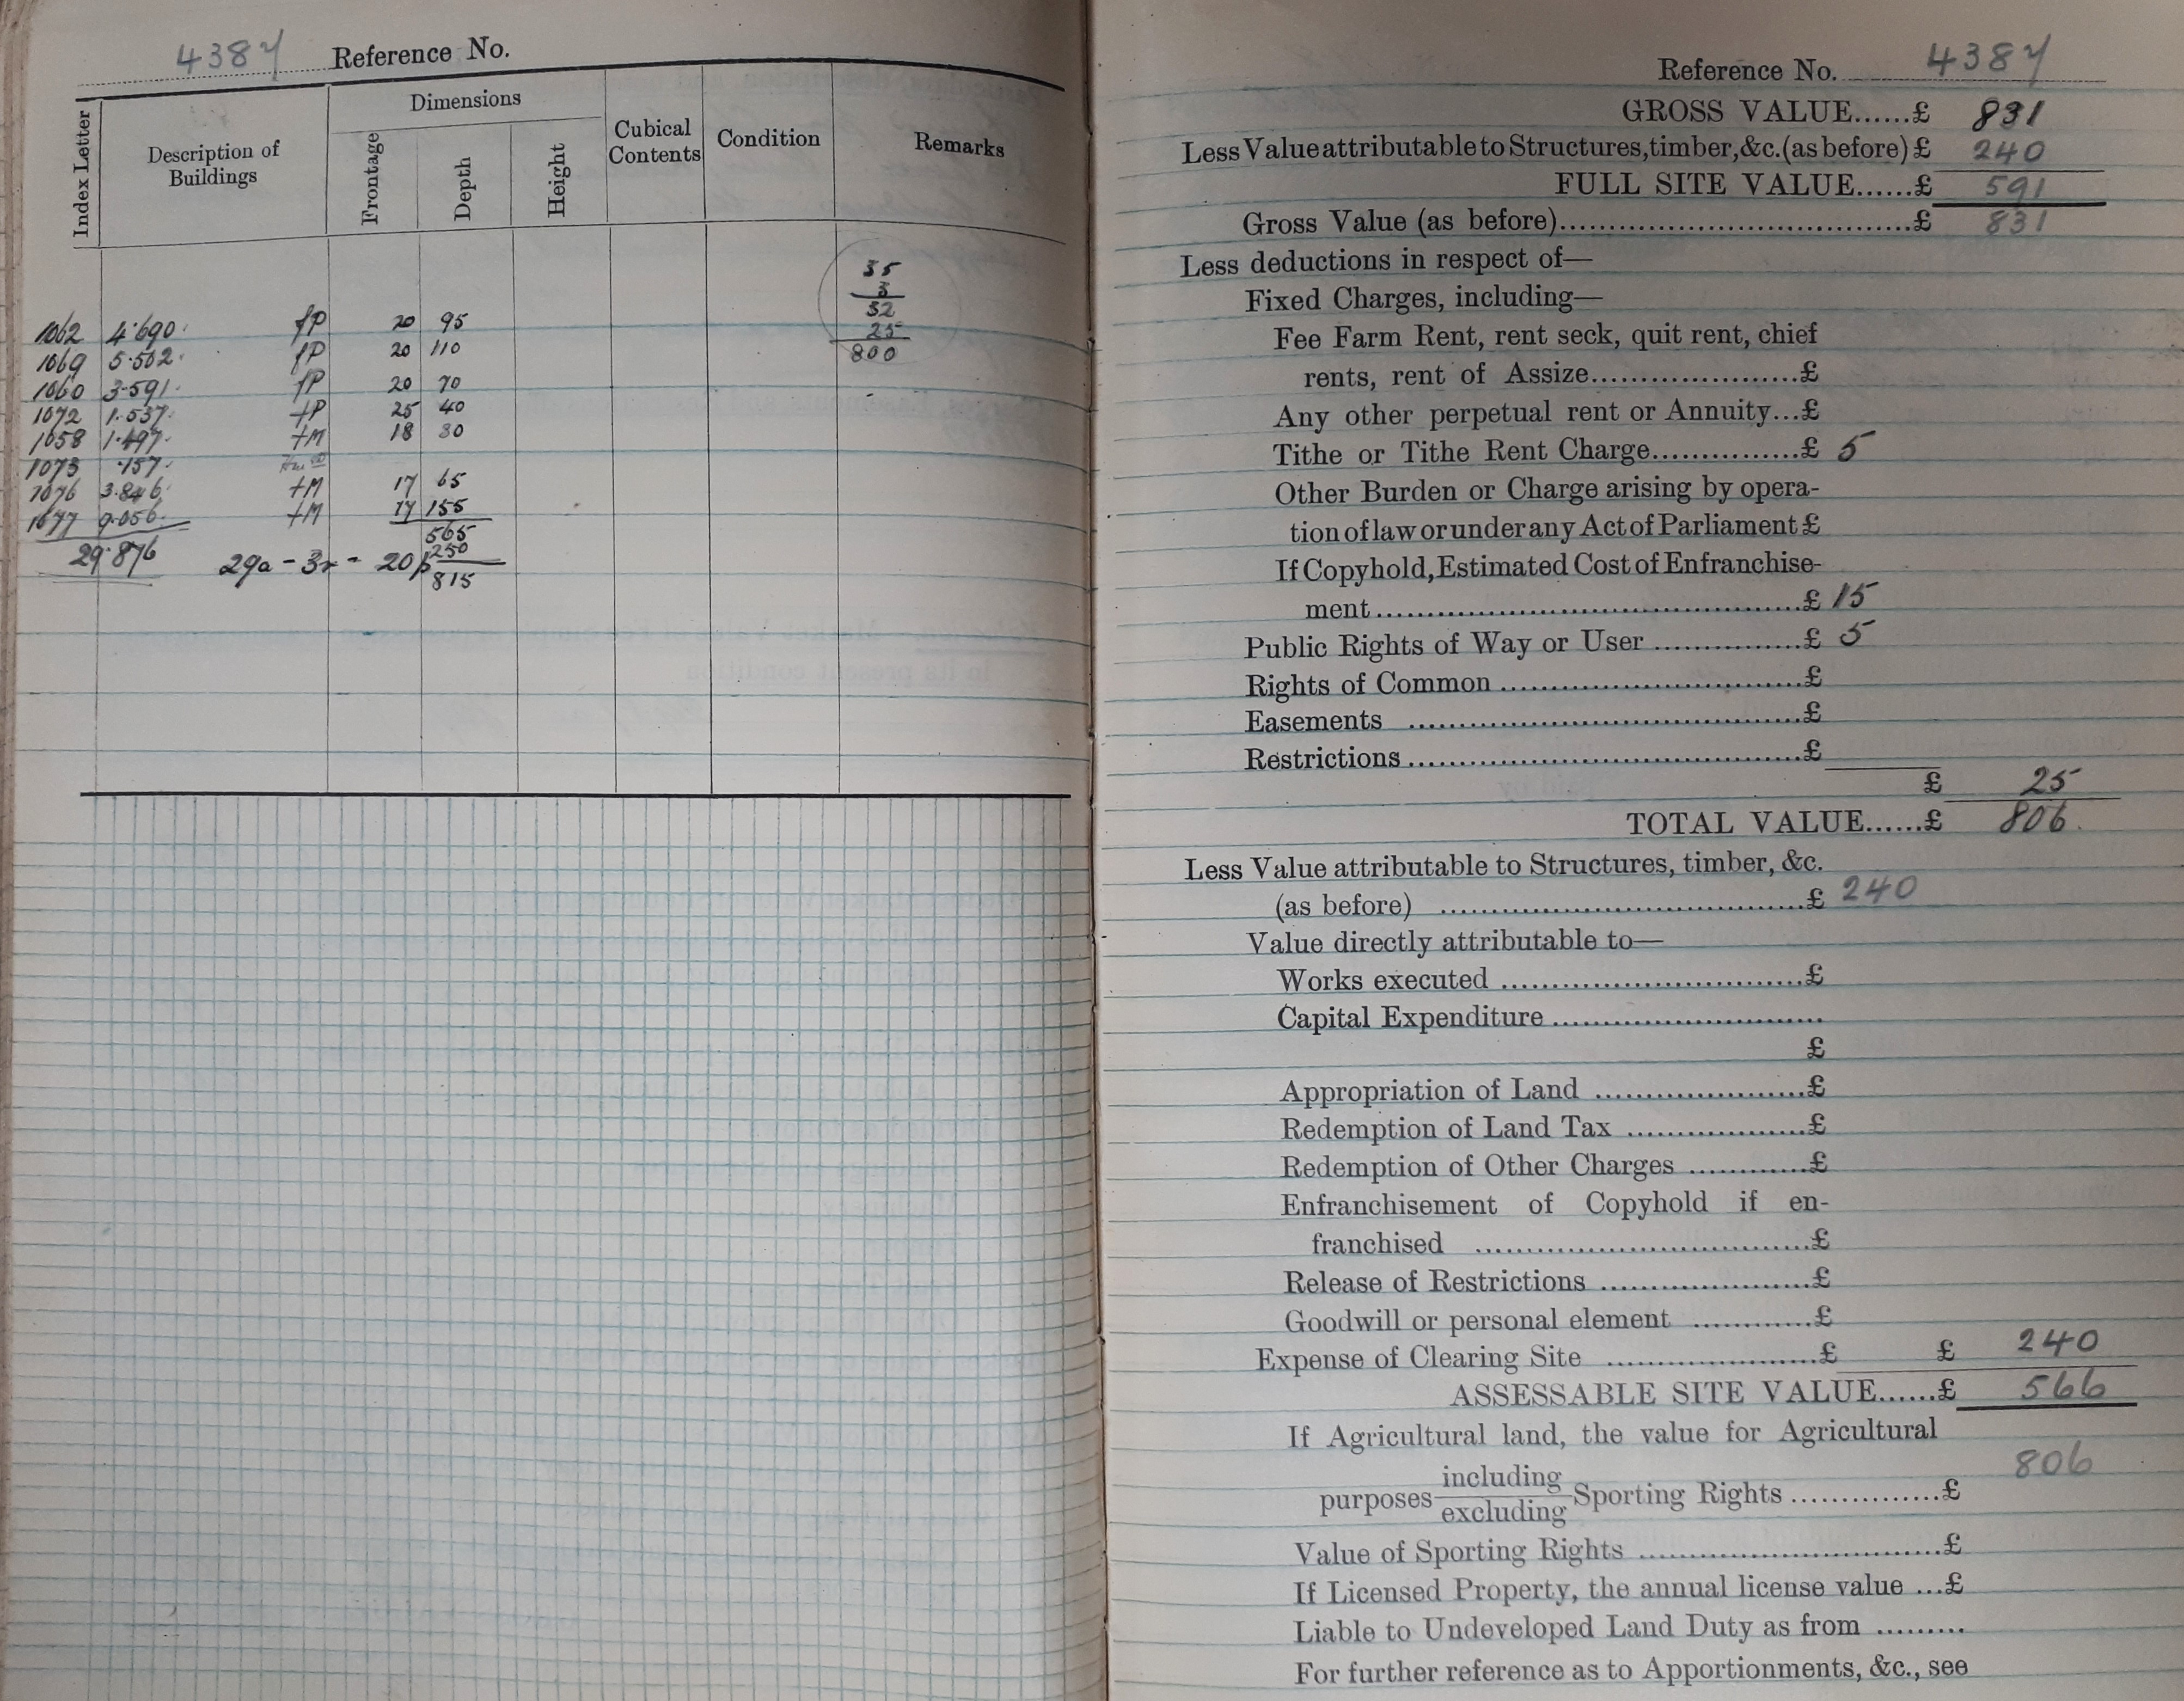 4387 Reference No.
Index Letter
Description of Buildings
Dimensions
Frontage
Depth
Height
Cubical Contents
Condition
Remarks
35
3
32
25
800
1062 4.690. fP 20 95
1069 5.502. fP 20 110
1060 3.591. fP 20 70
1072 1.537. +P 25 40
1058 1.497. +M 18 30
1073 .157.
1076 3.846. +M 17 65
1677 9.056. +M 17 155
565
29.876 29a - 3r - 20p 250
815
Reference No. 4387
GROSS VALUE......£ 831
Less Value attributable to Structures, timber, &c. (as before) £ 240
FULL SITE VALUE......£ 591
Gross Value (as before)....................................£ 831
Less deductions in respect of—
Fixed Charges, including—
Fee Farm Rent, rent seck, quit rent, chief
rents, rent of Assize.....................£
Any other perpetual rent or Annuity...£
Tithe or Tithe Rent Charge...............£ 5
Other Burden or Charge arising by opera-
tion of law or under any Act of Parliament £
If Copyhold, Estimated Cost of Enfranchise-
ment............................................£ 15
Public Rights of Way or User ...............£ 5
Rights of Common ................................£
Easements .........................................£
Restrictions .........................................£
£ 25
TOTAL VALUE......£ 806.
Less Value attributable to Structures, timber, &c.
(as before) .....................................£ 240
Value directly attributable to—
Works executed ...............................£
Capital Expenditure ............................
£
Appropriation of Land .....................£
Redemption of Land Tax ..................£
Redemption of Other Charges ............£
Enfranchisement of Copyhold if en-
franchised .................................£
Release of Restrictions .....................£
Goodwill or personal element ............£
Expense of Clearing Site .....................£ £ 240
ASSESSABLE SITE VALUE......£ 566
If Agricultural land, the value for Agricultural
806
purposes including
excluding Sporting Rights ................£
Value of Sporting Rights ...............................£
If Licensed Property, the annual license value ...£
Liable to Undeveloped Land Duty as from .........
For further reference as to Apportionments, &c., see